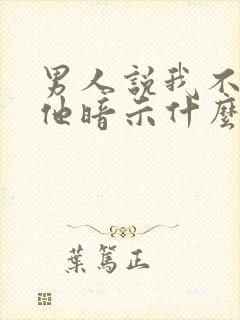 男人說我不
他暗示什麼
葉篤正